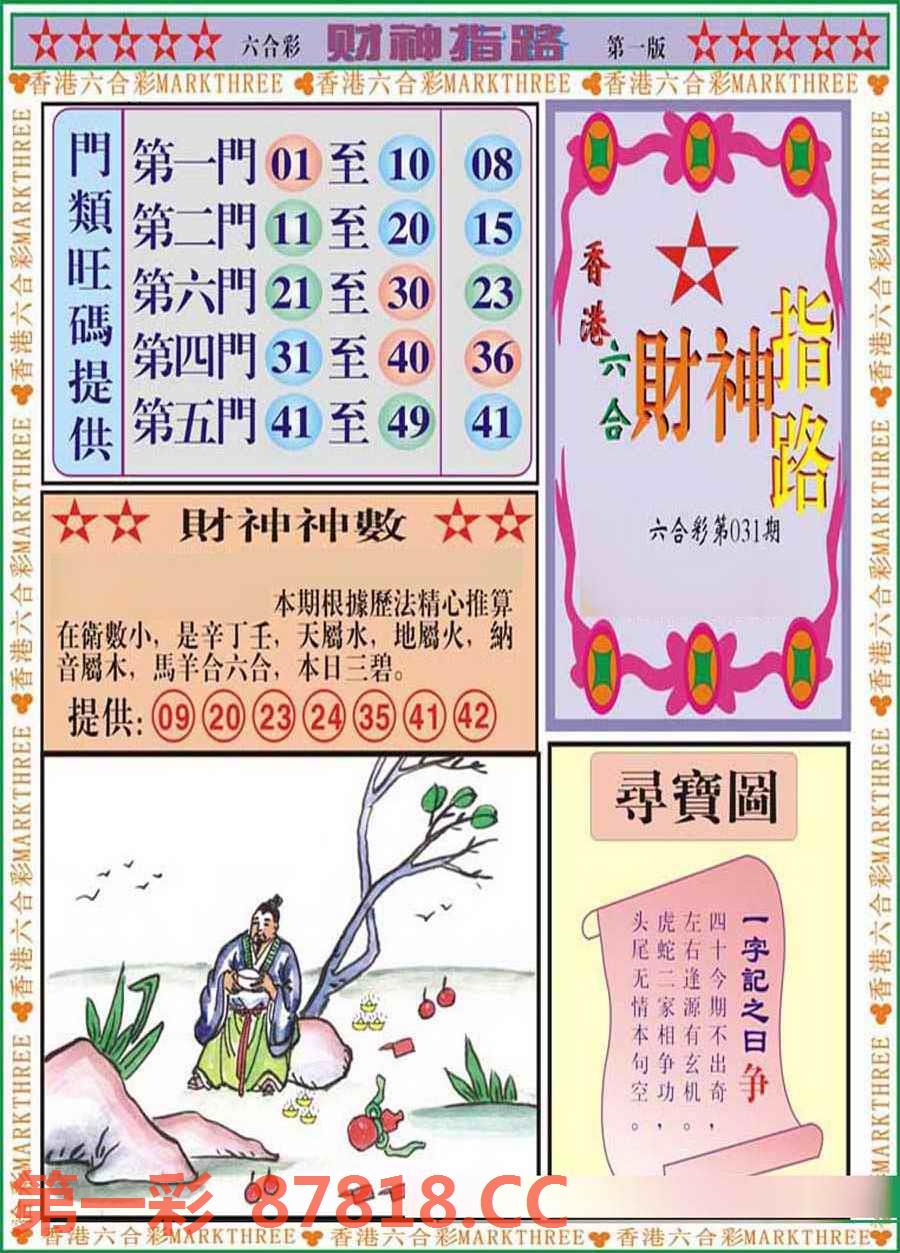 六合彩 财神指路 第一版
香港六合彩MARKTHREE 香港六合彩MARKTHREE 香港六合彩MARKTHREE
門類旺碼提供
第一門 01 至 10 08
第二門 11 至 20 15
第六門 21 至 30 23
第四門 31 至 40 36
第五門 41 至 49 41
香港六合
財神指路
六合彩第031期
財神神數
本期根據歷法精心推算
在衛數小，是辛丁壬，天屬水，地屬火，納
音屬木，馬羊合六合，本日三碧。
提供: 09 20 23 24 35 41 42
尋寶圖
一字記之曰争
四十今期不出奇，
左右逢源有玄机。
虎蛇二家相争功，
头尾无情本句空。
香港六合彩MARKTHREE
香港六合彩MARKTHREE
香港六合彩MARKTHREE
香港六合彩MARKTHREE
第一彩 87818.CC
香港六合彩MARKTHREE 香港六合彩MARKTHREE 香港六合彩MARKTHREE